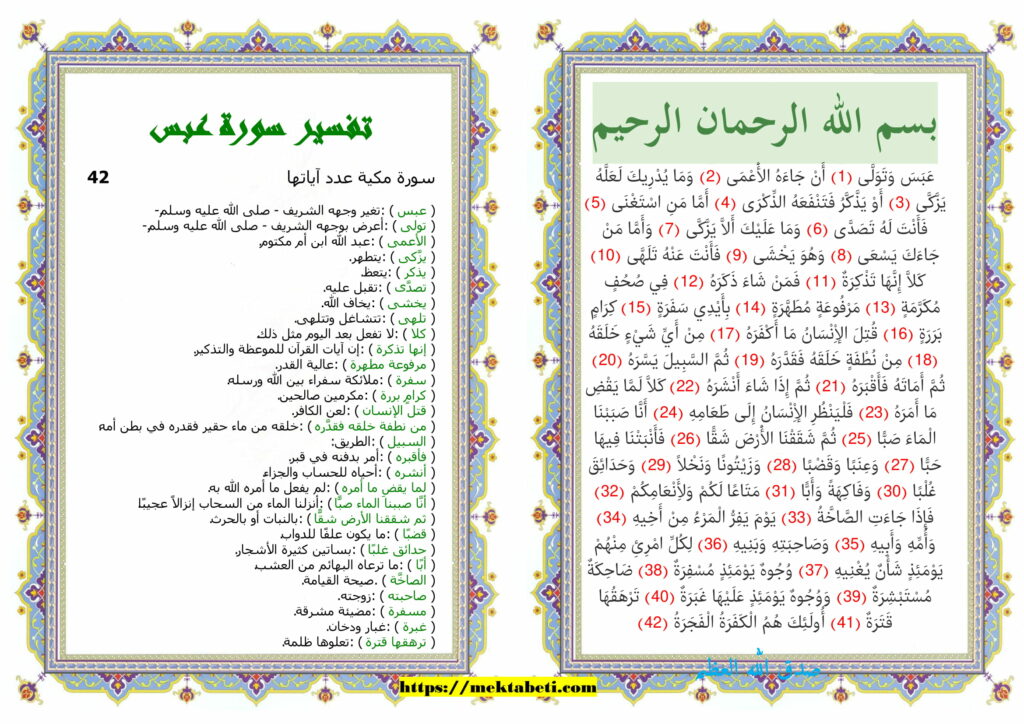 بسم الله الرحمان الرحيم
عَبَسَ وَتَوَلَّى (1) أَنْ جَاءَهُ الْأَعْمَى (2) وَمَا يُدْرِيكَ لَعَلَّهُ
يَزَّكَّى (3) أَوْ يَذَّكَّرُ فَتَنْفَعَهُ الذِّكْرَى (4) أَمَّا مَنِ اسْتَغْنَى (5)
فَأَنْتَ لَهُ تَصَدَّى (6) وَمَا عَلَيْكَ أَلاَّ يَزَّكَّى (7) وَأَمَّا مَنْ
جَاءَكَ يَسْعَى (8) وَهُوَ يَخْشَى (9) فَأَنْتَ عَنْهُ تَلَهَّى (10)
كَلاَّ إِنَّهَا تَذْكِرَةٌ (11) فَمَنْ شَاءَ ذَكَرَهُ (12) فِي صُحُفٍ
مُكَرَّمَةٍ (13) مَرْفُوعَةٍ مُطَهَّرَةٍ (14) بِأَيْدِي سَفَرَةٍ (15) كِرَامٍ
بَرَرَةٍ (16) قُتِلَ الإِنْسَانُ مَا أَكْفَرَهُ (17) مِنْ أَيِّ شَيْءٍ خَلَقَهُ
(18) مِنْ نُطْفَةٍ خَلَقَهُ فَقَدَّرَهُ (19) ثُمَّ السَّبِيلَ يَسَّرَهُ (20)
ثُمَّ أَمَاتَهُ فَأَقْبَرَهُ (21) ثُمَّ إِذَا شَاءَ أَنْشَرَهُ (22) كَلاَّ لَمَّا يَقْضِ
مَا أَمَرَهُ (23) فَلْيَنْظُرِ الإِنْسَانُ إِلَى طَعَامِهِ (24) أَنَّا صَبَبْنَا
الْمَاءَ صَبًّا (25) ثُمَّ شَقَقْنَا الأَرْضَ شَقًّا (26) فَأَنْبَتْنَا فِيهَا
حَبًّا (27) وَعِنَبًا وَقَضْبًا (28) وَزَيْتُونًا وَنَخْلاً (29) وَحَدَائِقَ
غُلْبًا (30) وَفَاكِهَةً وَأَبًّا (31) مَتَاعًا لَكُمْ وَلِأَنْعَامِكُمْ (32)
فَإِذَا جَاءَتِ الصَّاخَّةُ (33) يَوْمَ يَفِرُّ الْمَرْءُ مِنْ أَخِيهِ (34)
وَأُمِّهِ وَأَبِيهِ (35) وَصَاحِبَتِهِ وَبَنِيهِ (36) لِكُلِّ امْرِئٍ مِنْهُمْ
يَوْمَئِذٍ شَأْنٌ يُغْنِيهِ (37) وُجُوهٌ يَوْمَئِذٍ مُسْفِرَةٌ (38) ضَاحِكَةٌ
مُسْتَبْشِرَةٌ (39) وَوُجُوهٌ يَوْمَئِذٍ عَلَيْهَا غَبَرَةٌ (40) تَرْهَقُهَا
قَتَرَةٌ (41) أُولَئِكَ هُمُ الْكَفَرَةُ الْفَجَرَةُ (42)
صدق الله العظيم
تفسير سورة عبس
سورة مكية عدد آياتها 42
( عبس ) :تغير وجهه الشريف - صلى الله عليه وسلم-
( تولى ) :أعرض بوجهه الشريف - صلى الله عليه وسلم-
( الأعمى ) :عبد الله ابن أم مكتوم.
( يزَّكى ) :يتطهر.
( يذكر ) :يتعظ.
( تصدَّى ) :تقبل عليه.
( يخشى ) :يخاف الله.
( تلهى ) :تتشاغل وتتلهى.
( كلا ) :لا تفعل بعد اليوم مثل ذلك.
( إنها تذكرة ) :إن آيات القرآن للموعظة والتذكير.
( مرفوعة مطهرة ) :عالية القدر.
( سفرة ) :ملائكة سفراء بين الله ورسله.
( كرامٍ بررة ) :مكرمين صالحين.
( قتل الإنسان ) :لعن الكافر.
( من نطفة خلقه فقدَّره ) :خلقه من ماء حقير فقدره في بطن أمه
( السبيل ) :الطريق:
( فأقبره ) :أمر بدفنه في قبر.
( أنشره ) :أحياه للحساب والجزاء.
( لما يقض ما أمره ) :لم يفعل ما أمره الله به.
( أنَّا صببنا الماء صبًّا ) :أنزلنا الماء من السحاب إنزالاً عجيبًا
( ثم شققنا الأرض شقًّا ) :بالنبات أو بالحرث.
( قضبًا ) :ما يكون علفًا للدواب.
( حدائق غلبًا ) :بساتين كثيرة الأشجار.
( أبًّا ) :ما ترعاه البهائم من العشب.
( الصاخَّة ) .صيحة القيامة.
( صاحبته ) :زوجته.
( مسفرة ) :مضيئة مشرقة.
( غبرة ) :غبار ودخان.
( ترهقها قترة ) :تعلوها ظلمة.
https://mektabeti.com